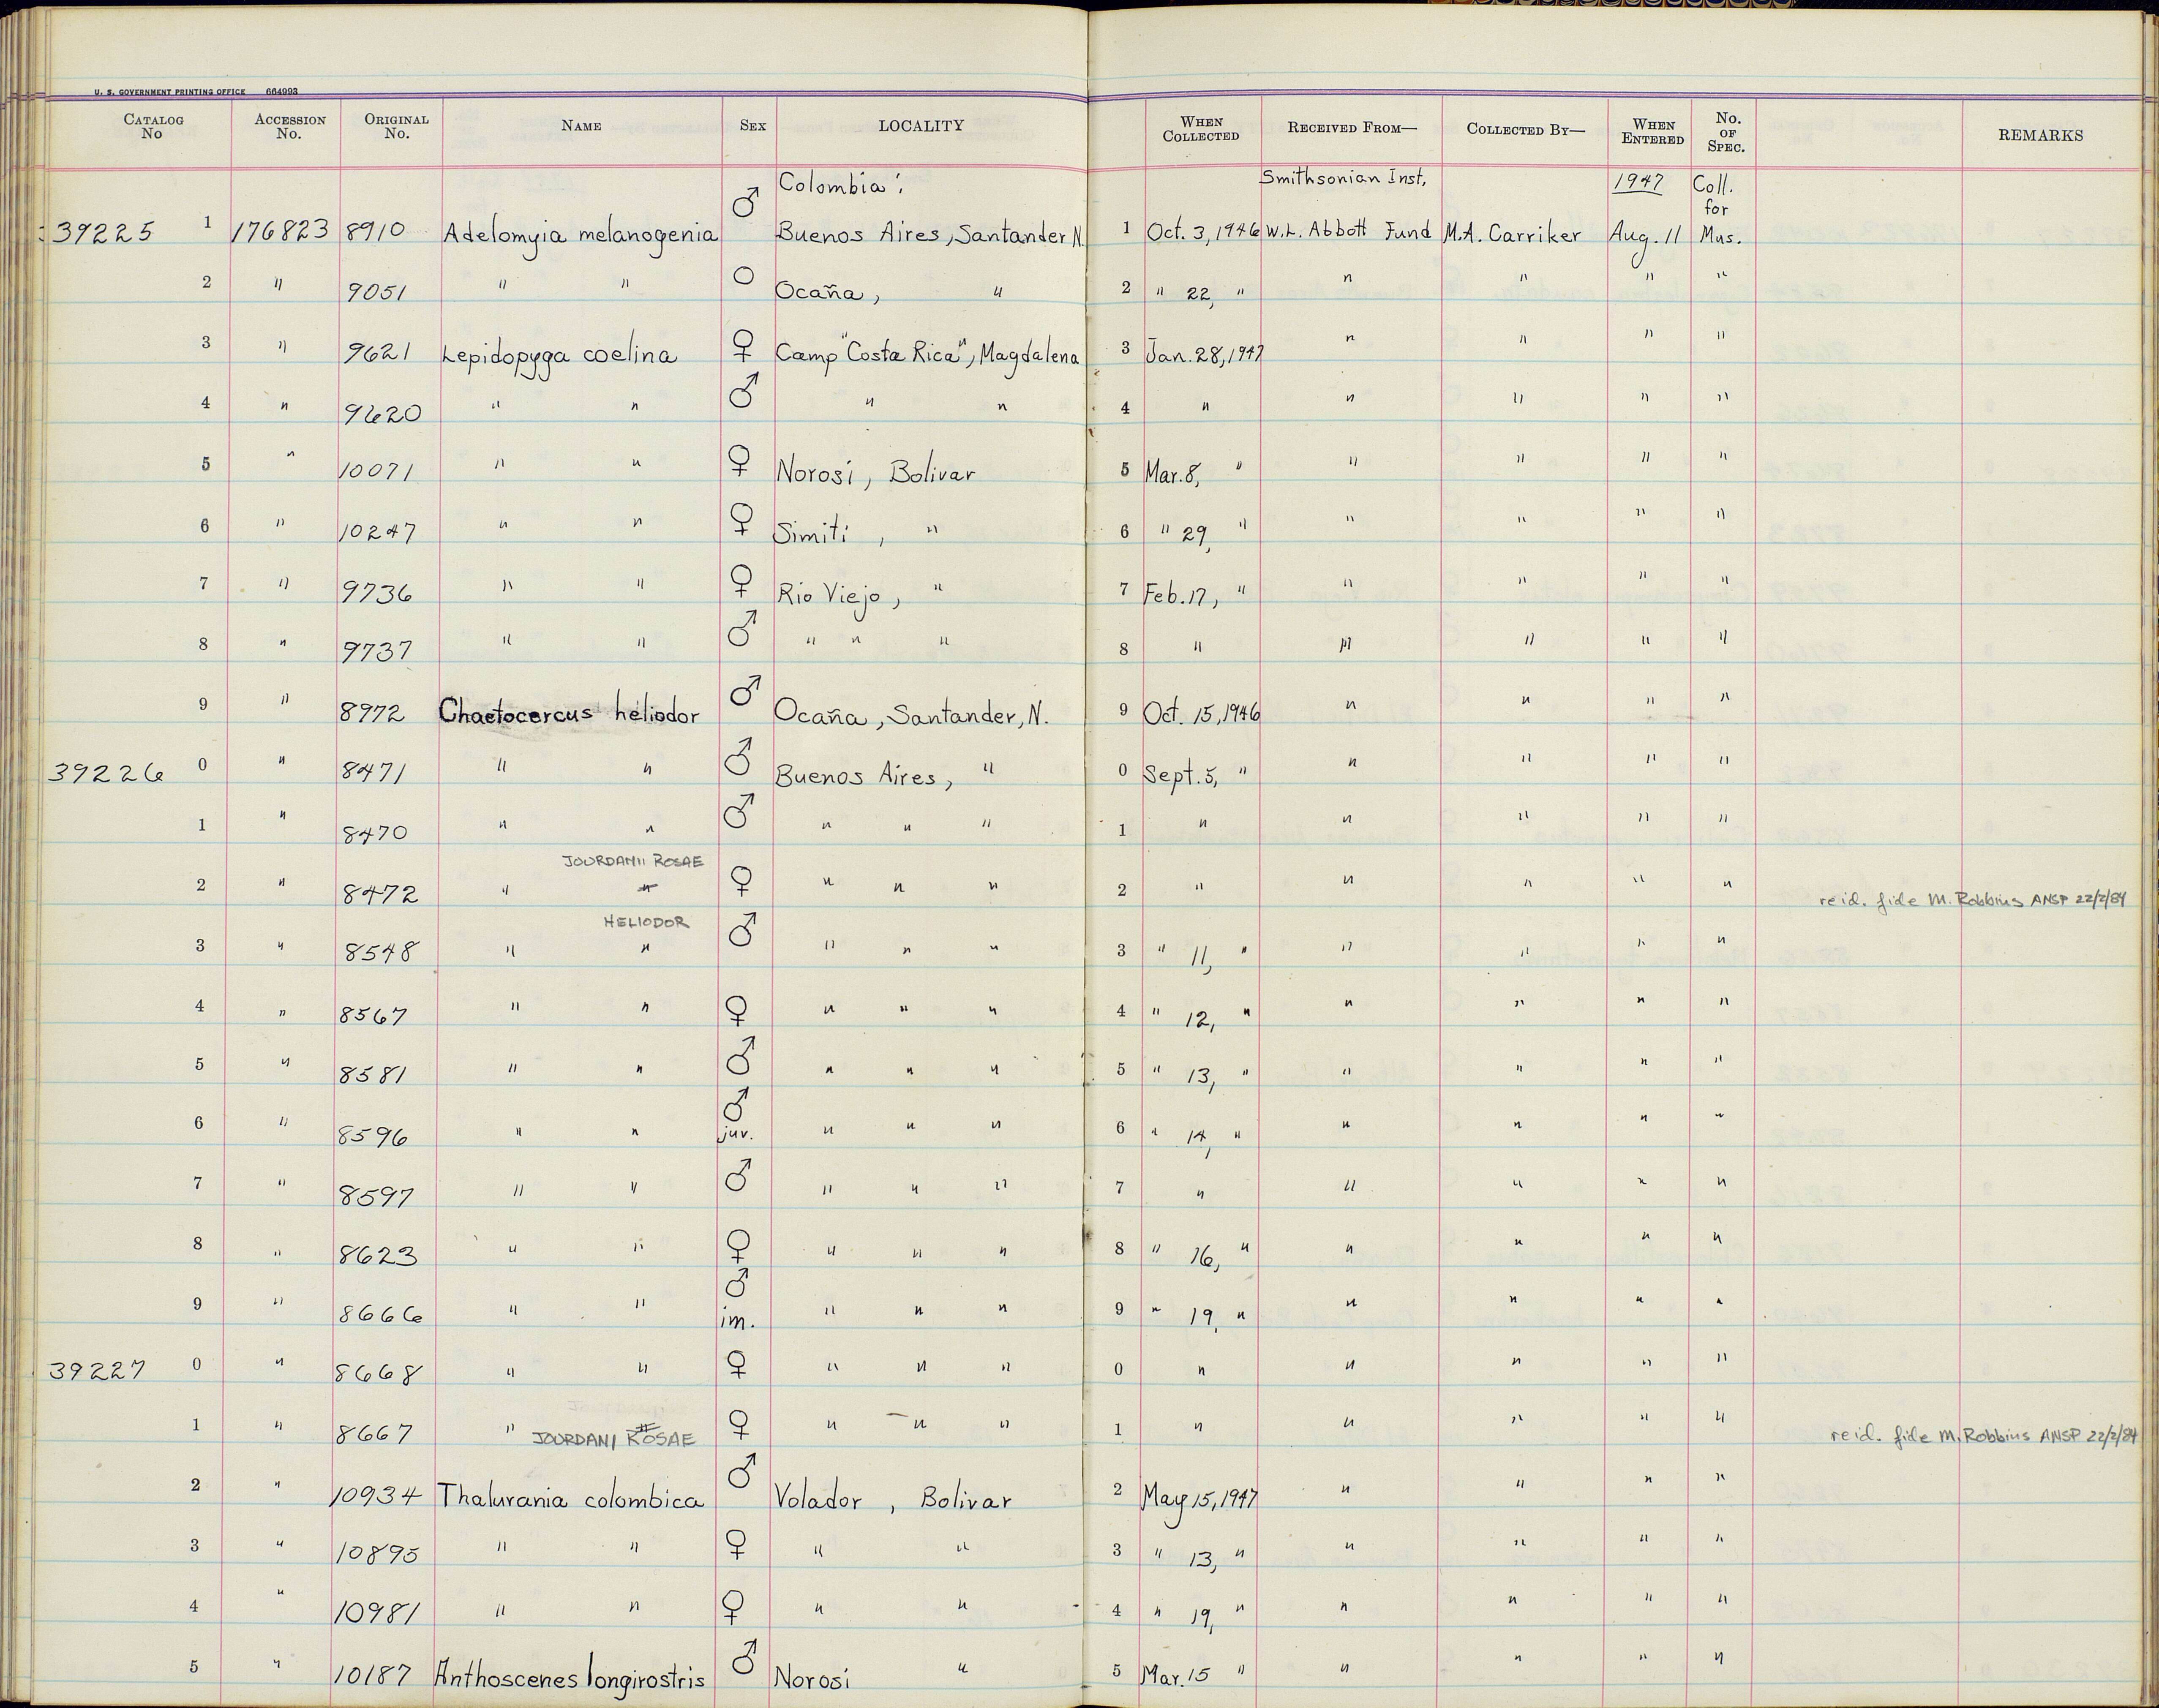 U. S. GOVERNMENT PRINTING OFFICE 664993
CATALOG No ACCESSION No. ORIGINAL No. NAME SEX LOCALITY WHEN COLLECTED RECEIVED FROM— COLLECTED BY— WHEN ENTERED No. OF SPEC. REMARKS
Colombia: Smithsonian Inst, 1947 Coll. for
39225 1 176823 8910 Adelomyia melanogenia ♂ Buenos Aires, Santander N. 1 Oct. 3, 1946 W.L. Abbott Fund M.A. Carriker Aug. 11 Mus.
2 " 9051 " " O Ocaña, " 2 " 22, " " " " "
3 " 9621 Lepidopyga coelina ♀ Camp "Costa Rica", Magdalena 3 Jan. 28, 1947 " " " "
4 " 9620 " " ♂ " " 4 " " " " "
5 " 10071 " " ♀ Norosi, Bolivar 5 Mar. 8, " " " " "
6 " 10247 " " ♀ Simiti , " 6 " 29, " " " " "
7 " 9736 " " ♀ Rio Viejo, " 7 Feb. 17, " " " " "
8 " 9737 " " ♂ " " " 8 " " " " "
9 " 8972 Chaetocercus heliodor ♂ Ocaña, Santander, N. 9 Oct. 15, 1946 " " " "
39226 0 " 8471 " " ♂ Buenos Aires, " 0 Sept. 5, " " " " "
1 " 8470 " " ♂ " " " 1 " " " " "
JOURDANII ROSAE
2 " 8472 " " ♀ " " " 2 " " " " " reid. fide M. Robbins ANSP 22/2/84
HELIODOR
3 " 8548 " " ♂ " " " 3 " 11, " " " " "
4 " 8567 " " ♀ " " " 4 " 12, " " " " "
5 " 8581 " " ♂ " " " 5 " 13, " " " " "
6 " 8596 " " ♂ juv. " " " 6 " 14, " " " " "
7 " 8597 " " ♂ " " " 7 " " " " "
8 " 8623 " " ♀ " " " 8 " 16, " " " " "
9 " 8666 " " ♂ im. " " " 9 " 19, " " " " "
39227 0 " 8668 " " ♀ " " " 0 " " " " "
1 " 8667 " " ♀ " " " 1 " " " " " reid. fide M. Robbins ANSP 22/2/84
JOURDANI ROSAE
2 " 10934 Thalurania colombica ♂ Volador , Bolivar 2 May 15, 1947 " " " "
3 " 10895 " " ♀ " " 3 " 13, " " " " "
4 " 10981 " " ♀ " " 4 " 19, " " " " "
5 " 10187 Anthoscenes longirostris ♂ Norosi " 5 Mar. 15 " " " " "